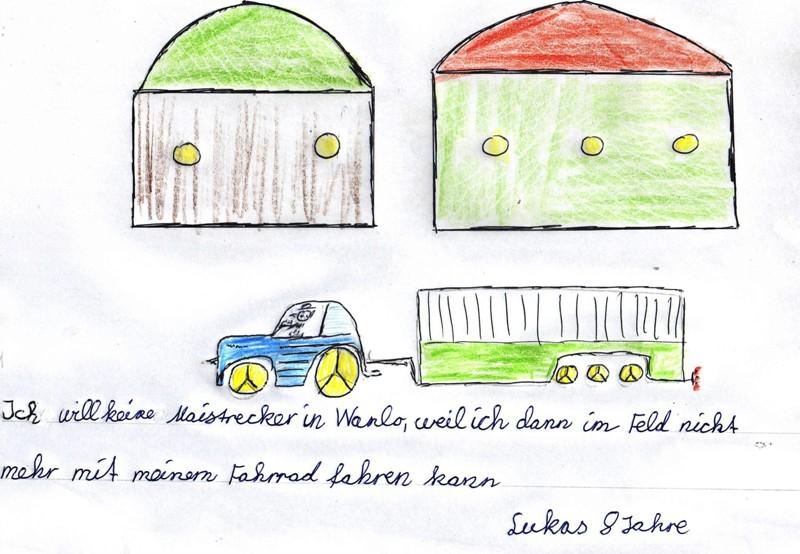 Ich will keine Maistrecker in Wanlo, weil ich dann im Feld nicht
mehr mit meinem Fahrrad fahren kann
Lukas 8 Jahre